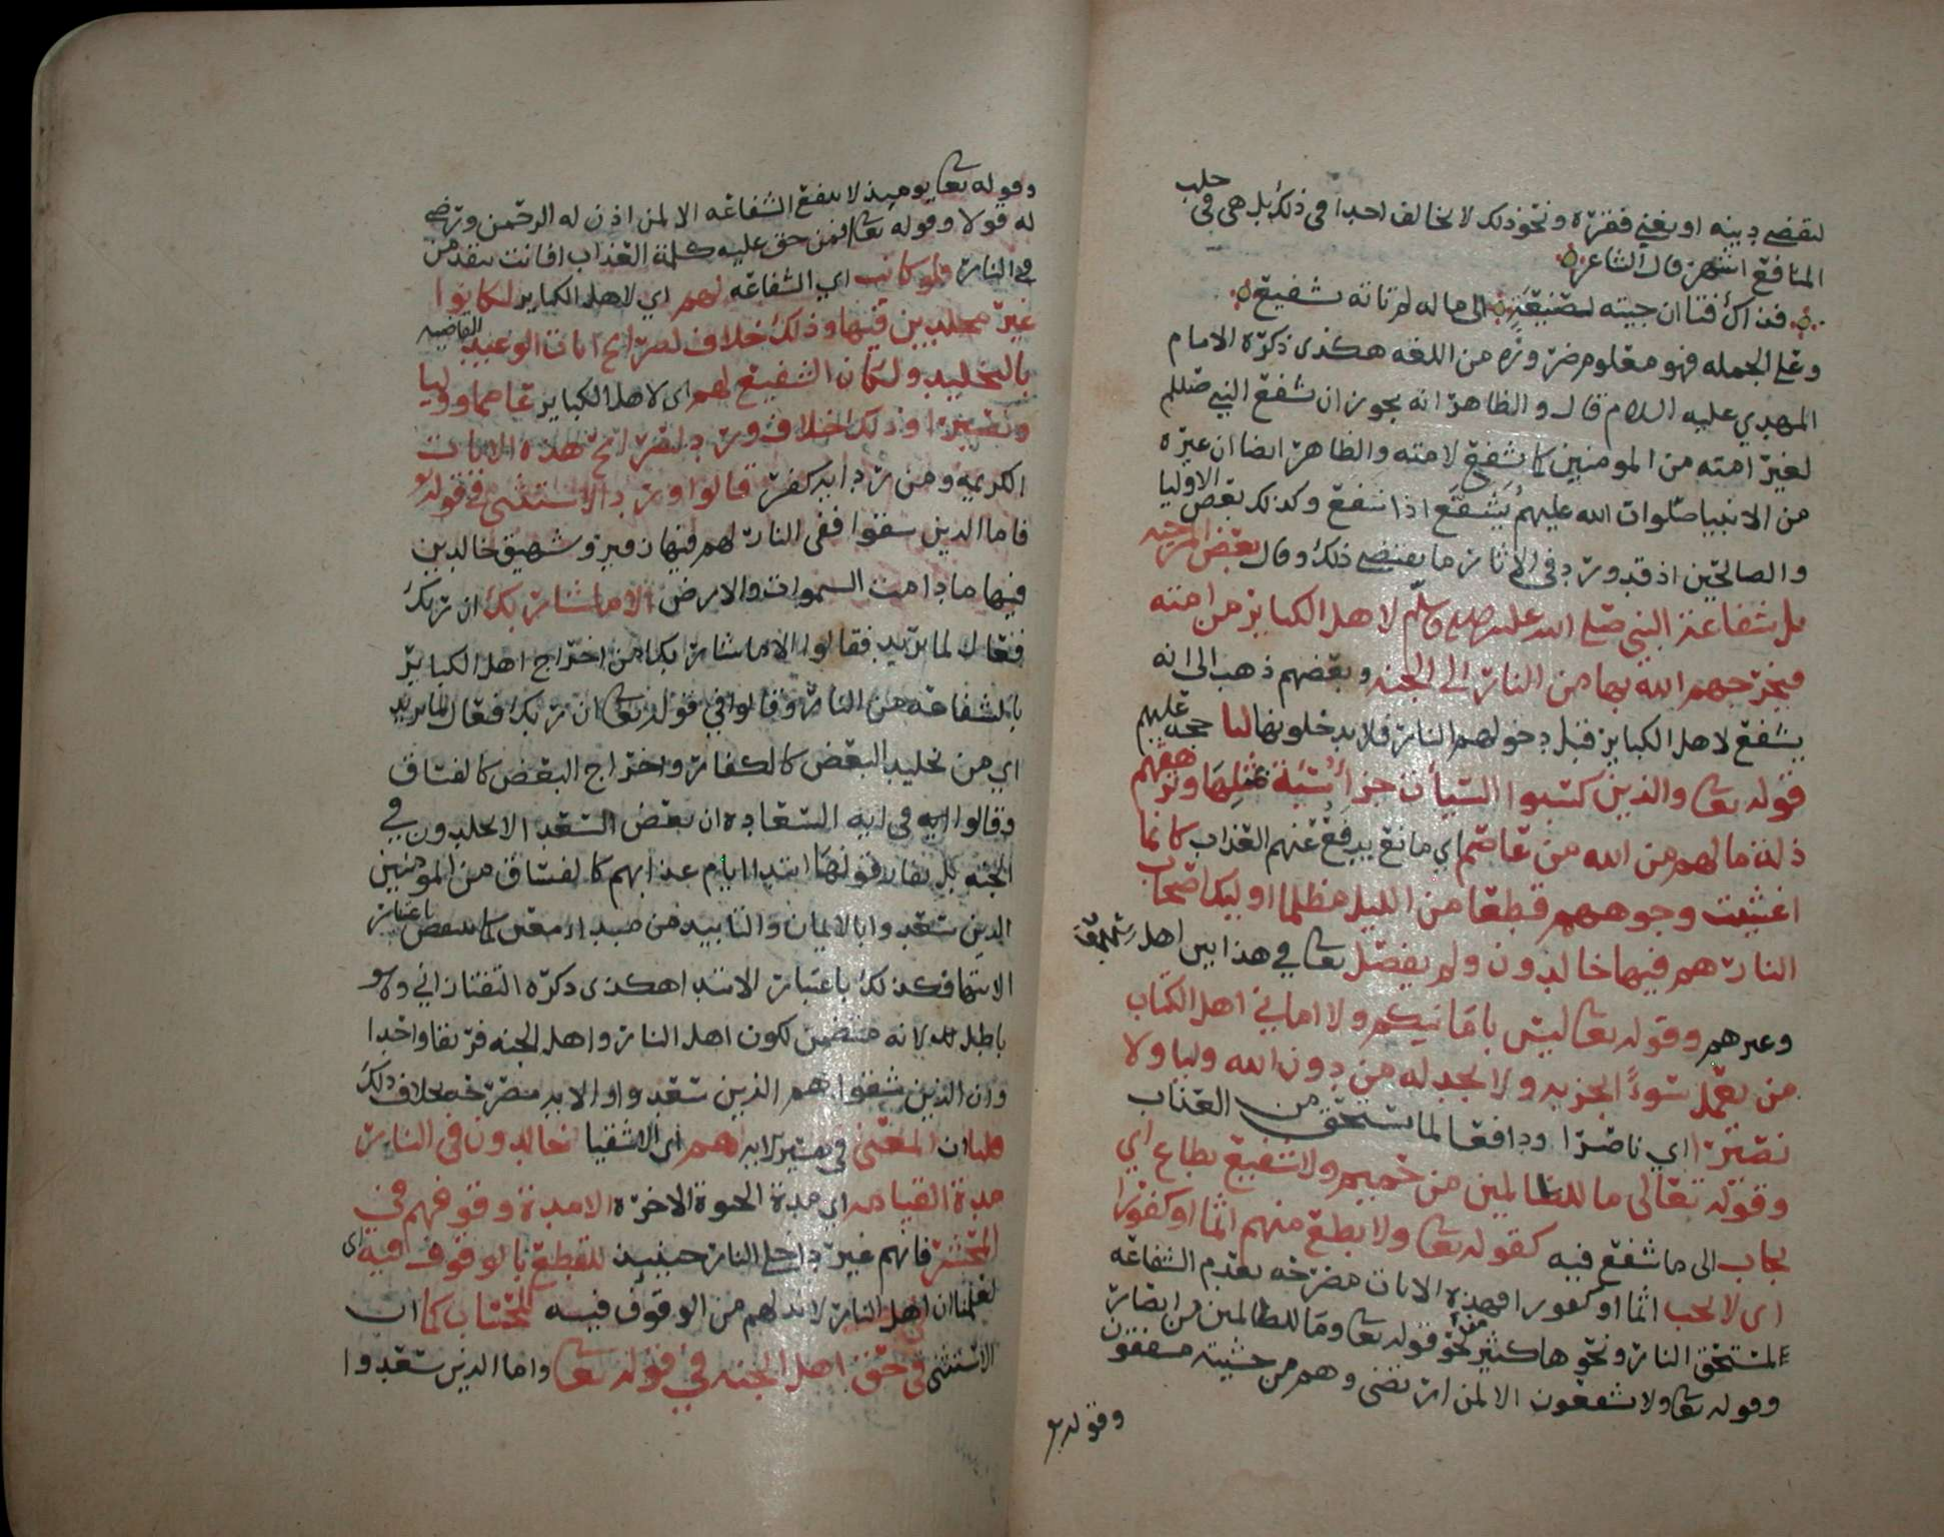 ليقضي دينه او يغني فقره ونحو ذلك لا يخالف احد في ذلك بل هي في جلب
المنافع اشهر قال الشاعر
فذاك فتا ان جيته لصنيعة الى ماله لم تاته بشفيع
وعلى الجمله فهو معلوم ضرورة من اللغه هكذى ذكره الامام
المهدي عليه السلام قال والظاهر انه يجوز ان يشفع النبي صللم
لغير امته من المومنين كما يشفع لامته والظاهر ايضا ان غيره
من الانبيا صلوات الله عليهم يشفع اذا شفع وكذلك بعض الاوليا
والصالحين اذ قد ورد في الاثار ما يقتضي ذلك وقال بعض المرجيه
بل شفاعة النبي صلى الله عليه وسلم لاهل الكباير من امته
فيخرجهم الله بها من النار الى الجنه وبعضهم ذهب الى انه
يشفع لاهل الكباير قبل دخولهم النار فلا يدخلونها لنا حجه عليهم
قوله تعا والذين كسبوا السيأت جزأ سيئة بمثلها وترهقهم
ذلة ما لهم من الله من عاصم اي مانع يدفع عنهم العذاب كانما
اغشيت وجوههم قطعا من الليل مظلما اوليك اصحاب
النار هم فيها خالدون ولم يفصل تعا في هذا بين اهل
وغيرهم وقوله تعا ليس بامانيكم ولا اماني اهل الكتاب
من يعمل سوءً يجز به ولا يجد له من دون الله وليا ولا
نصيرا اي ناصرا ودافعا لما يستحق من العذاب
وقوله تعالى ما للظالمين من حميم ولا شفيع يطاع اي
يجاب الى ما شفع فيه كقوله تعا ولا تطع منهم اثما او كفورا
اى لا تجب اثما او كفورا فهذه الايات مصرحه بعدم الشفاعه
لمستحق النار ونحوها كثير نحو قوله تعا وما للظالمين من انصار
وقوله تعا ولا يشفعون الا لمن ارتضى وهم من خشيته مشفقون
وقوله تع
وقوله تعا يوميذ لا تنفع الشفاعه الا لمن اذن له الرحمن ورضي
له قولا وقوله تعا افمن حق عليه كلمة العذاب افانت تنقذ من
في النار فلو كانت اي الشفاعه لهم اي لاهل الكباير لكانوا
غير مخلدين فيها وذلك خلاف لصرايح ايات الوعيد القاضيه
بالتخليد ولكان الشفيع لهم اى لاهل الكباير عاصما ووليا
ونصيرا وذلك خلاف ورد لصرايح هذه الايات
الكريمه ومن رد ايه كفر قالوا ورد الاستثنى في قوله تع
فاما الذين سقوا ففى النار لهم فيها زفير وشهيق خالدين
فيها ما دامت السموات والارض الا ما شا ربك ان ربك
فعال لما يريد فقالوا الا ما شا ربك من اخراج اهل الكباير
بالشفاعه من النار وقالوا في قوله تعا ان ربك فعال لما يريد
اي من تخليد البعض كالكفار واخراج البعض كالفساق
وقالوا ايه في ايه السعاده ان بعض السعدا لا يخلدون في
الجنه بل يفارقونها ابتدا ايام عذابهم كالفساق من المومنين
الذين سعدوا بالايمان والتابيد من مبدا معين كما ينقص باعتبار
الانتها فكذلك باعتبار الابتدا هكذى ذكره التفتازاني وهو
باطل لانه متضمن لكون اهل النار واهل الجنه فريقا واحدا
وان الذين شقوا هم الذين سعدوا والايه مصرحه بخلاف ذلك
قلنا ان المعنى في الايه هم اي الاشقيا خالدون في النار
مدة القيامه اي مدة الحيوة الاخره الا مدة وقوفهم في
المحشر فانهم غير داخلي النار حينيذ للقطع بالوقوف فيه اى
لعلمنا ان اهل النار لا بد لهم من الوقوف فيه للحساب كما ان
الاستثنى في حق اهل الجنه في قوله تعا واما الذين سعدوا